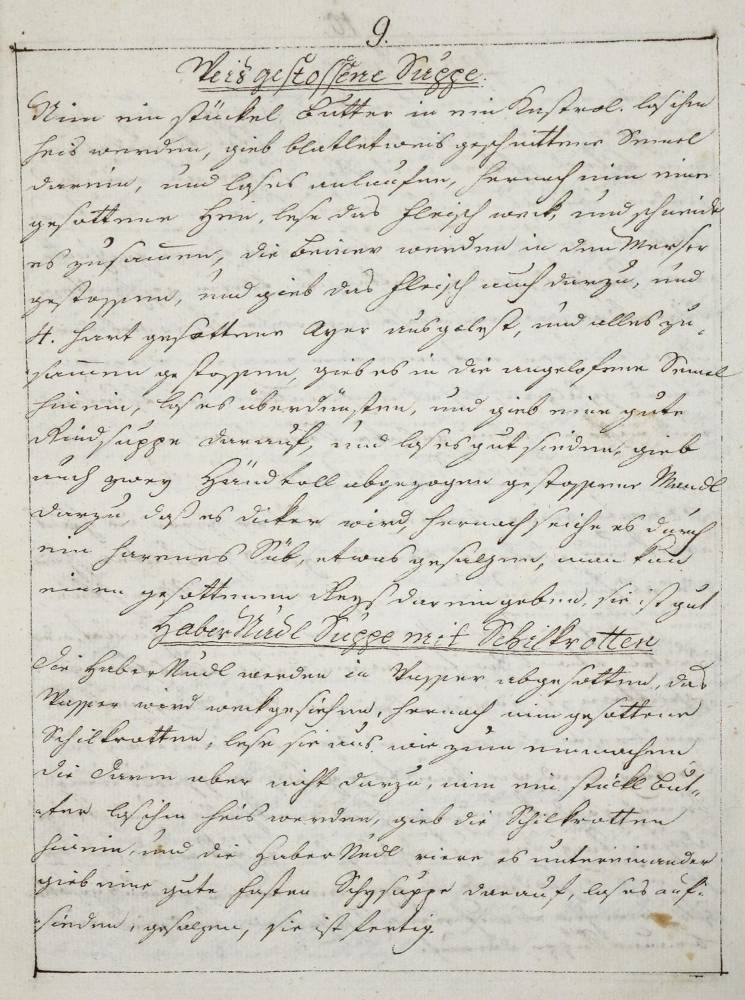 9.
Weis gestossene Suppe.
Nim ein stückel Butter in ein Kastrol. las ihm
heis werden, gieb blatletweis geschnittene Semel
darein, und las es anlaufen, hernach nim eine
gesottene Hen, lese das fleisch weck, und schneide
es zusamen, die beiner werden in den Merser
gestossen, und gieb das fleisch auch darzu, und
4. hart gesottene Ayer ausgelest, und alles zu„
samen gestossen, gieb es in die angelofene Semel
hinein, las es überdünsten, und gieb eine gute
Rindsuppe darauf, und las es gut sieden, gieb
auch zwey Händvoll abgezogen gestossene Mandl
darzu, daß es dicker wird, hernach seiche es durch
ein harenes Süb, etwas gesalzen, man kan
einen gesottenen Reys darein geben, sie ist gut
Haber Nudl Suppe mit Schilkrotten
Die Haber Nudl werden in Wasser abgesotten, das
Wasser wird weckgesiehen, hernach nim gesottene
Schilkrotten, lese sie aus, wie zum einmachen
die Darm aber nicht darzu, nim ein stückl But„
ter las ihm heis werden, gieb die Schilkrotten
hinein, und die Haber Nudl riere es untereinander
gieb eine gute fasten Schysuppe darauf, las es auf„
sieden, gesalzen, sie ist fertig.